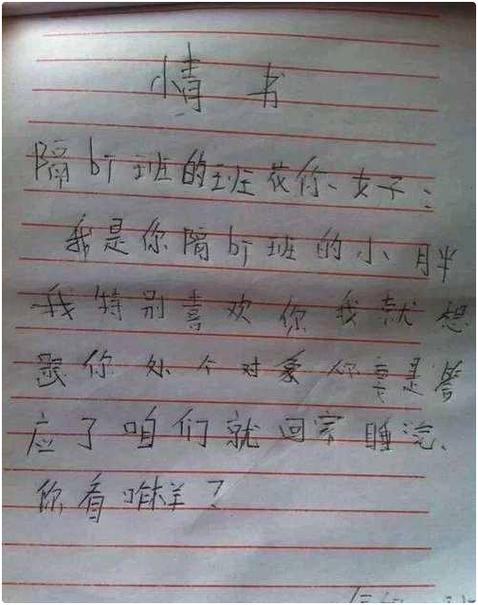 情书
隔bi班的班花你女子:
我是你隔bi班的小月半
我特别喜欢你我就想
跟你处个对象你要是答
应了咱们就回家睡觉、
你看咋样?